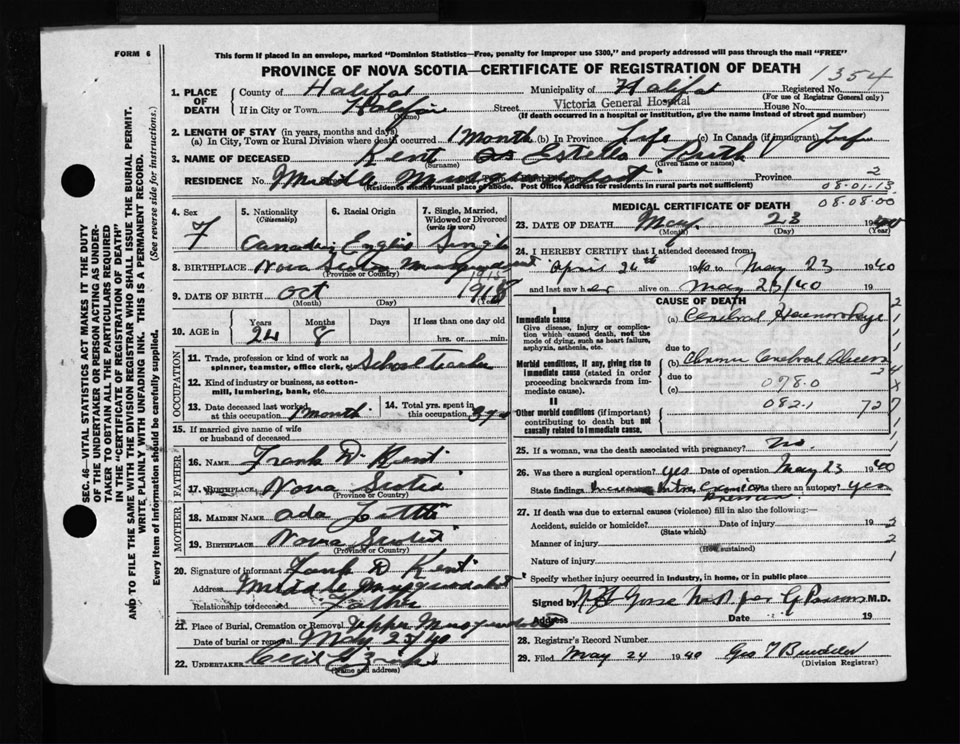 FORM 6
This form if placed in an envelope, marked "Dominion Statistics—Free, penalty for improper use $300," and properly addressed will pass through the mail "FREE"
PROVINCE OF NOVA SCOTIA—CERTIFICATE OF REGISTRATION OF DEATH 1354
1. PLACE OF DEATH
County of Halifax Municipality of Halifax Registered No.
(For use of Registrar General only)
If in City or Town Halifax Street Victoria General Hospital House No.
(Name) (If death occurred in a hospital or institution, give the name instead of street and number)
2. LENGTH OF STAY (in years, months and days)
(a) In City, Town or Rural Division where death occurred 1 month (b) In Province Life (c) In Canada (if immigrant) Life
3. NAME OF DECEASED Kent Estella Ruth
(Surname) (Given name or names)
RESIDENCE No. Middle Musquodoboit Province 2
(Residence means usual place of abode. Post Office Address for residents in rural parts not sufficient)
08.01.13
08.08.00
4. Sex F
5. Nationality (Citizenship) Canadian
6. Racial Origin English
7. Single, Married, Widowed or Divorced (write the word) Single
8. BIRTHPLACE Nova Scotia
(Province or Country)
9. DATE OF BIRTH Oct 1915
(Month) (Day)
10. AGE in Years 24 Months 8 Days If less than one day old hrs. or min.
OCCUPATION
11. Trade, profession or kind of work as spinner, teamster, office clerk, etc. School teacher
12. Kind of industry or business, as cotton-mill, lumbering, bank, etc.
13. Date deceased last worked at this occupation 1 month
14. Total yrs. spent in this occupation 3 yrs
15. If married give name of wife or husband of deceased
FATHER
16. Name Frank D. Kent
17. Birthplace Nova Scotia
(Province or Country)
MOTHER
18. Maiden Name Ada
19. Birthplace Nova Scotia
(Province or Country)
20. Signature of informant Frank D Kent
Address Middle Musquodoboit
Relationship to deceased Father
21. Place of Burial, Cremation or Removal Upper Musquodoboit
Date of burial or removal May 25/40
22. Undertaker Cecil
(Name and address)
MEDICAL CERTIFICATE OF DEATH
23. DATE OF DEATH May 23 1940
(Month) (Day) (Year)
24. I HEREBY CERTIFY that I attended deceased from:
April 24th 1940 to May 23 1940
and last saw her alive on May 23/40 19
CAUSE OF DEATH
I
Immediate cause
Give disease, injury or complication which caused death, not the mode of dying, such as heart failure, asphyxia, asthenia, etc.
(a) Cerebral Haemorrhage
due to
Morbid conditions, if any, giving rise to immediate cause (stated in order proceeding backwards from immediate cause).
(b) Cerebral
due to
(c) 078.0
II
082.1 72
Other morbid conditions (if important) contributing to death but not causally related to immediate cause.
25. If a woman, was the death associated with pregnancy? No
26. Was there a surgical operation? Yes Date of operation May 23 1940
State findings Increased intra cranial pressure Was there an autopsy? Yes
27. If death was due to external causes (violence) fill in also the following:—
Accident, suicide or homicide? Date of injury 19
(State which)
Manner of injury
(How sustained)
Nature of injury
Specify whether injury occurred in industry, in home, or in public place
Signed by M.D.
Address Date 19
28. Registrar's Record Number
29. Filed May 24 1940 Geo T
(Division Registrar)
SEC. 46—VITAL STATISTICS ACT MAKES IT THE DUTY OF THE UNDERTAKER OR PERSON ACTING AS UNDERTAKER TO OBTAIN ALL THE PARTICULARS REQUIRED IN THE "CERTIFICATE OF REGISTRATION OF DEATH" AND TO FILE THE SAME WITH THE DIVISION REGISTRAR WHO SHALL ISSUE THE BURIAL PERMIT.
WRITE PLAINLY WITH UNFADING INK. THIS IS A PERMANENT RECORD.
Every item of information should be carefully supplied. (See reverse side for instructions.)